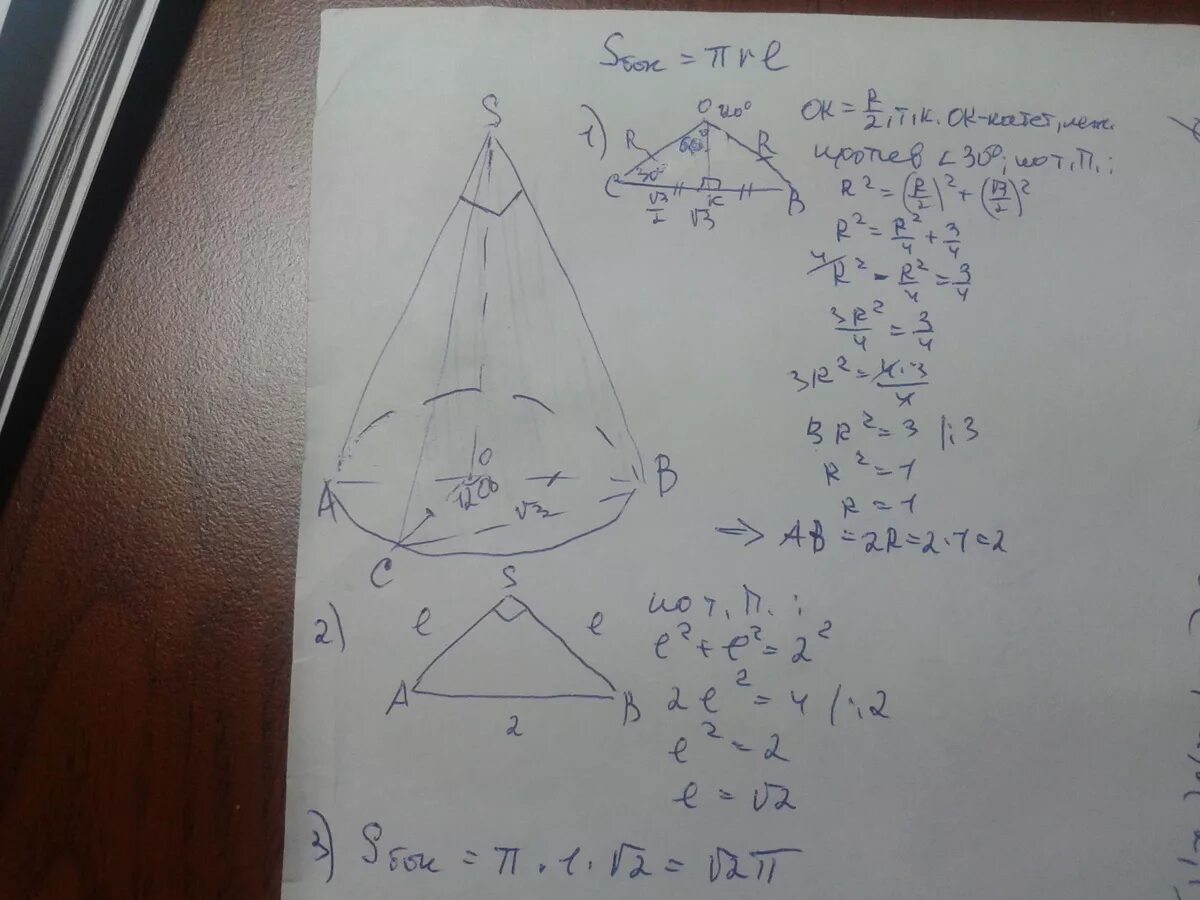 Sбок = πrl
S
A
B
C
O
120°
√3
1)
O 120°
R
R
60°
30°
C
K
B
√3/2
√3
OK = R/2, т.к. OK-катет, леж.
против ∠30°; по т.П.:
R² = (R/2)² + (√3/2)²
R² = R²/4 + 3/4
4/R² - R²/4 = 3/4
3R²/4 = 3/4
3R² = 4·3/4
3R² = 3 |:3
R² = 1
R = 1
=> AB = 2R = 2·1 = 2
2)
S
l
l
A
B
2
по т.П.:
l² + l² = 2²
2l² = 4 /:2
l² = 2
l = √2
3) Sбок = π·1·√2 = √2π